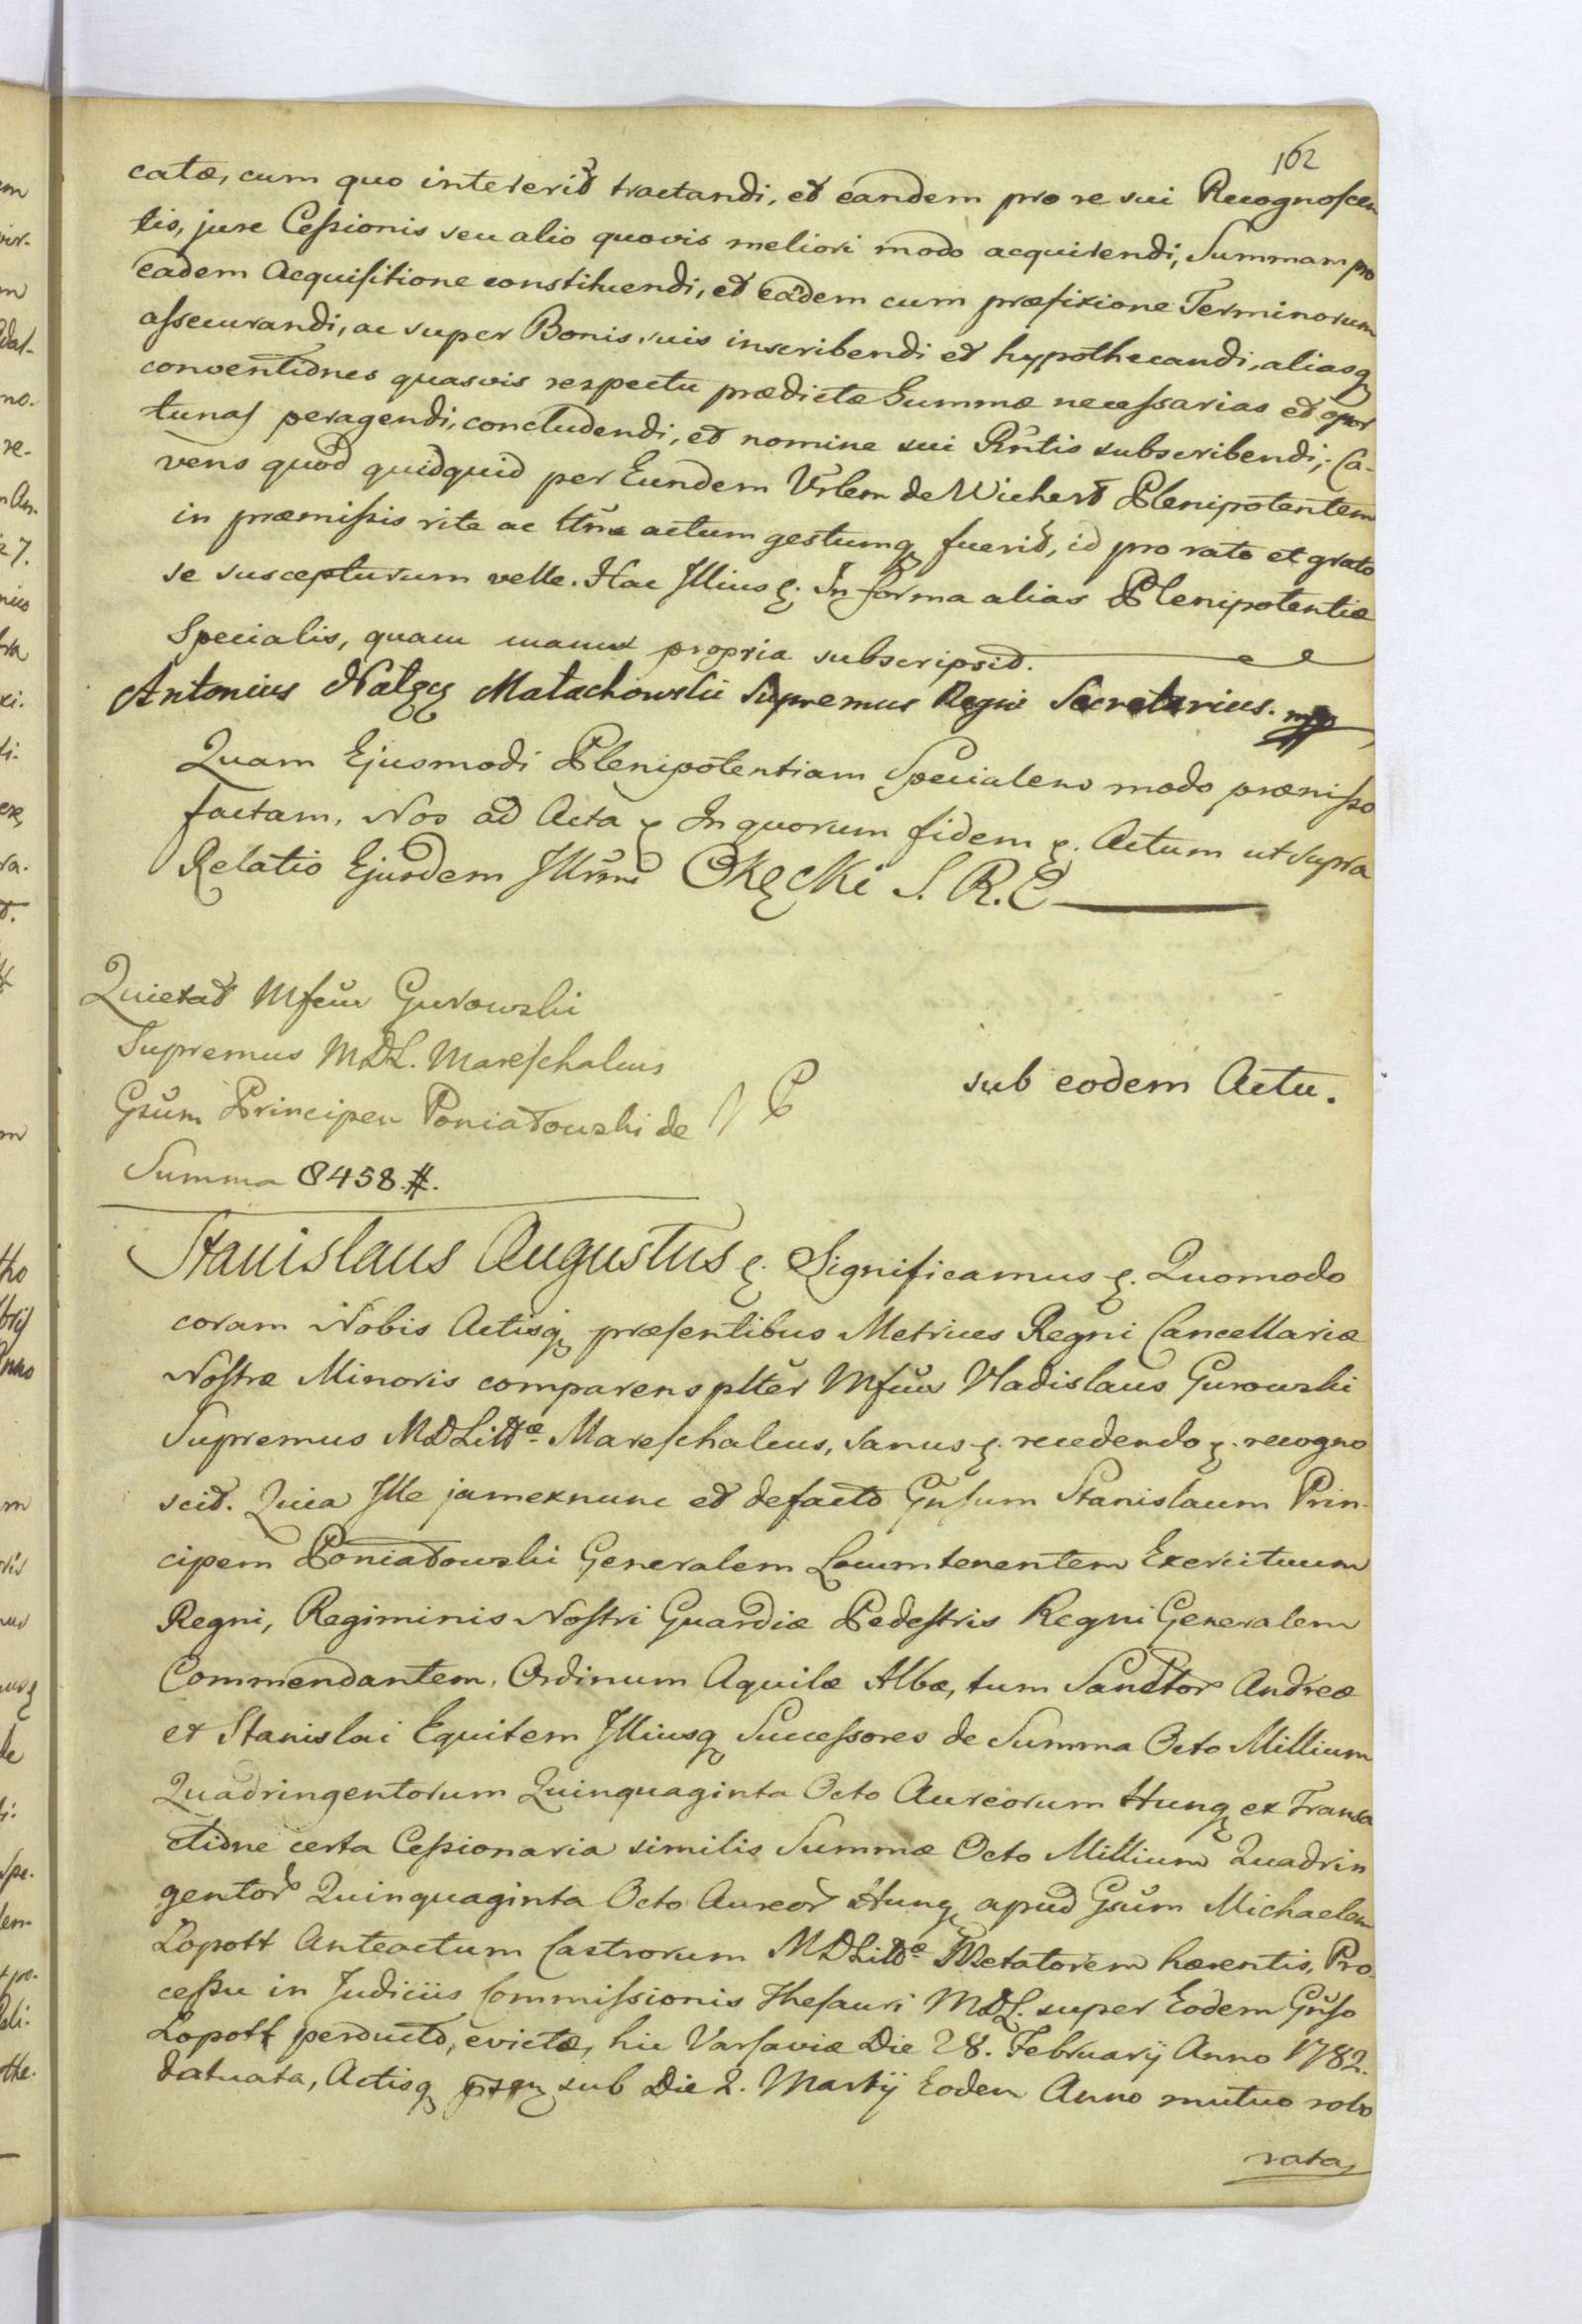 162
catæ, cum quo intererit tractandi, et eandem pro re sui Recognoscen
tis, jure Cessionis seu alio quovis meliori modo acquirendi, Summam pro
eadem Acquisitione constituendi, et eadem cum præfixione Terminorum
assecurandi, ac super Bonis suis inscribendi et hypothecandi, aliasq
conventiones quasvis respectu prædictæ Summæ necessarias et opor
tunas peragendi, concludendi, et nomine sui Rntis subscribendi; Ca-
vens quod quidquid per Eundem Urlem de Wichert Plenipotentem
in præmissis rite ac ttme actum gestumq fuerit, id pro rato et grato
se suscepturum velle. Hac Illius &. In forma alias Plenipotentiæ
Specialis, quam manu propria subscripsit.
Antonius Nałęcz Małachowski Supremus Regni Secretarius. mpp
Quam Ejusmodi Plenipotentiam Specialem modo præmisso
factam, Nos ad Acta & In quorum fidem &. Actum ut supra
Relatio Ejusdem Illrmi Okęcki S. R. C
Quietat Mfcus Gurowski
Supremus MDL. Mareschalcus
Gsum Principem Poniatowski de
Summa 8458.#.
sub eodem Actu.
Stanislaus Augustus &. Significamus &. Quomodo
coram Nobis Actisq præsentibus Metrices Regni Cancellariæ
Nostræ Minoris comparens plter Mfcus Vladislaus Gurowski
Supremus MDLittæ Mareschalcus, Sanus &. recedendo &. recogno
scit. Quia Ille jamexnunc et defacto Gnsum Stanislaum Prin-
cipem Poniatowski Generalem Locumtenentem Exercituum
Regni, Regiminis Nostri Guardiæ Pedestris Regni Generalem
Commendantem, Ordinum Aquilæ Albæ, tum Sanctor Andreæ
et Stanislai Equitem Illiusq Successores de Summa Octo Millium
Quadringentorum Quinquaginta Octo Aureorum Hung ex Transa
ctione certa Cessionaria similis Summæ Octo Millium Quadrin
gentor Quinquaginta Octo Aureor Hung apud Gsum Michaelem
Łopott Anteactum Castrorum MDLittæ Metatorem hærentis, Pro-
cessu in Judiciis Commissionis Thesauri MDL. super Eodem Gnso
Łopott perducto, evictæ, hic Varsaviæ Die 28. Februarij Anno 1782.
datuata, Actisq sub Die 2. Martij Eodem Anno mutuo robo
rata,